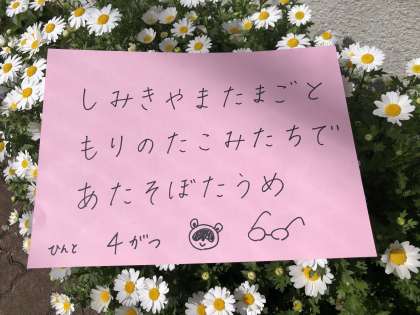 しみきやまたまごと
もりのたこみたちで
あたそぼたうめ
ひんと 4がつ